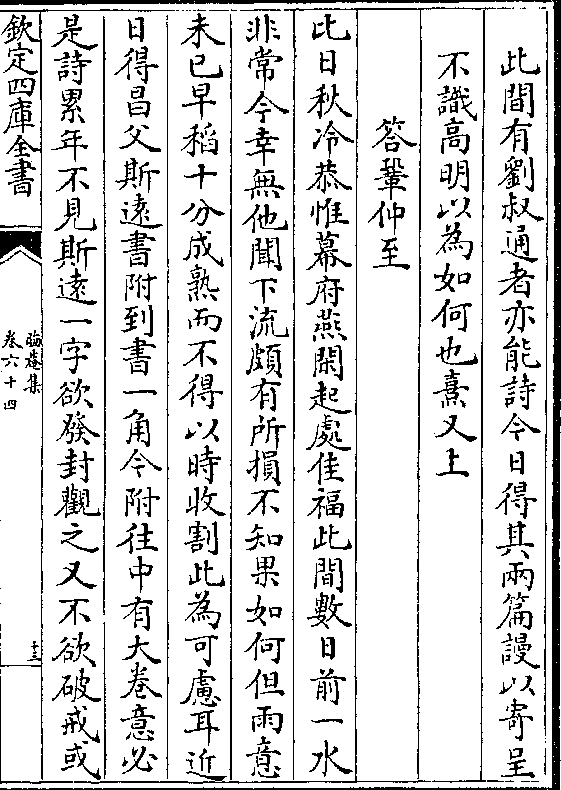 此間有劉叔通者亦能詩今日得其兩篇謾以寄呈
不識高明以為如何也熹又上
答鞏仲至
比日秋冷恭惟幕府燕閑起處佳福此間數日前一水
非常今幸無他聞下流頗有所損不知果如何但雨意
未已早稻十分成熟而不得以時收割此為可慮耳近
日得昌父斯遠書附到書一角今附往中有大卷意必
是詩累年不見斯遠一字欲發封觀之又不欲破戒或
欽定四庫全書
晦菴集
卷六十四
十三